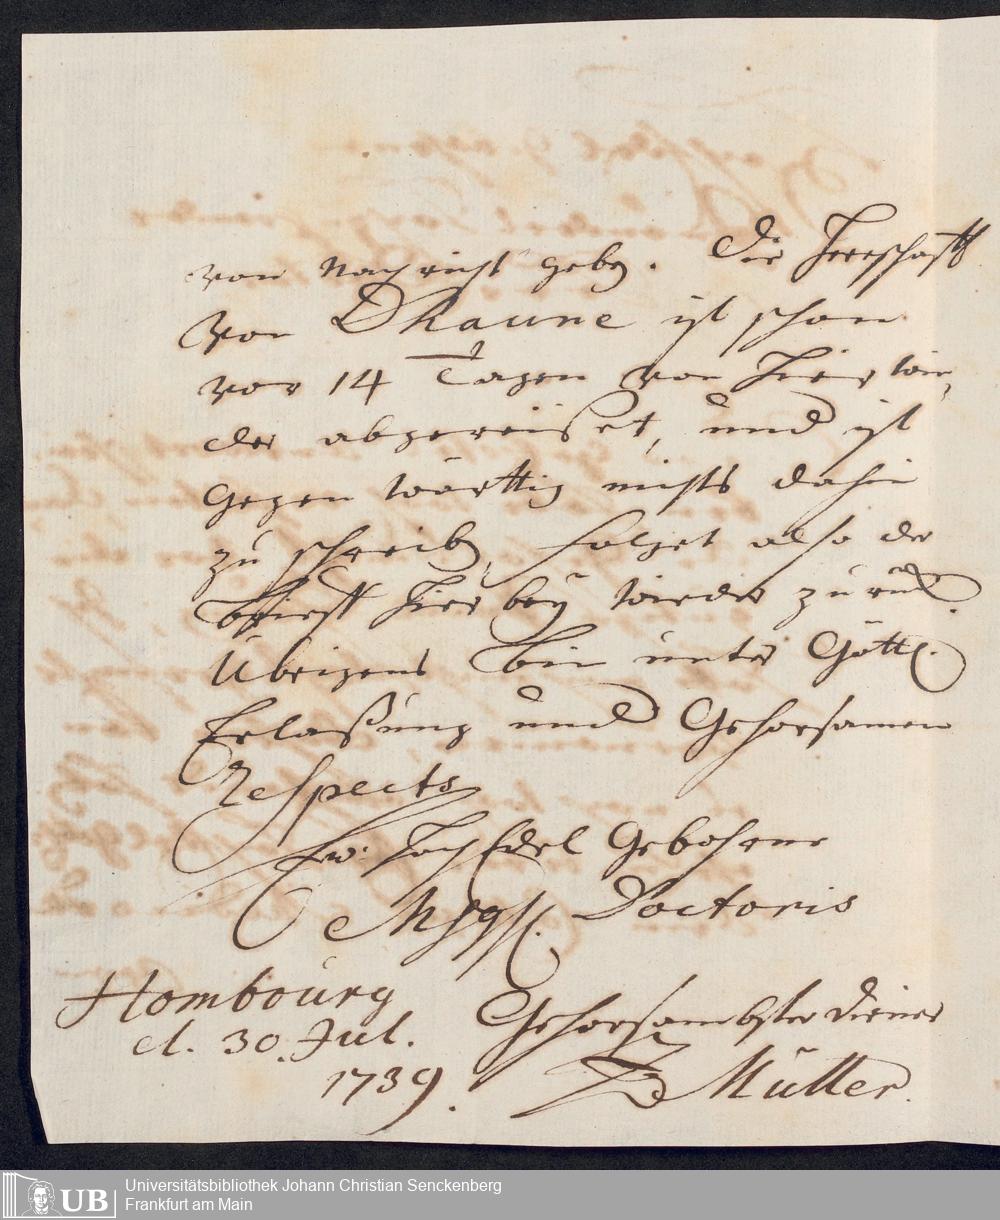 von Nachricht geben. Die Herrschafft
von Dhaune ist schon
vor 14 Tagen von hier wie,
der abgereißet, und ist
gegen wärttig nichts dahin
zu schreiben, folget also der
brieff hierbey wieder zurück.
Übrigens bin unter Göttl.
Erlaßung und Gehorsamen
Respects
Ew: HochEdel Gebohrne
Doctoris
Hombourg
d. 30. Jul.
1739.
Gehorsambster diener
Müller.
UB
Universitätsbibliothek Johann Christian Senckenberg
Frankfurt am Main